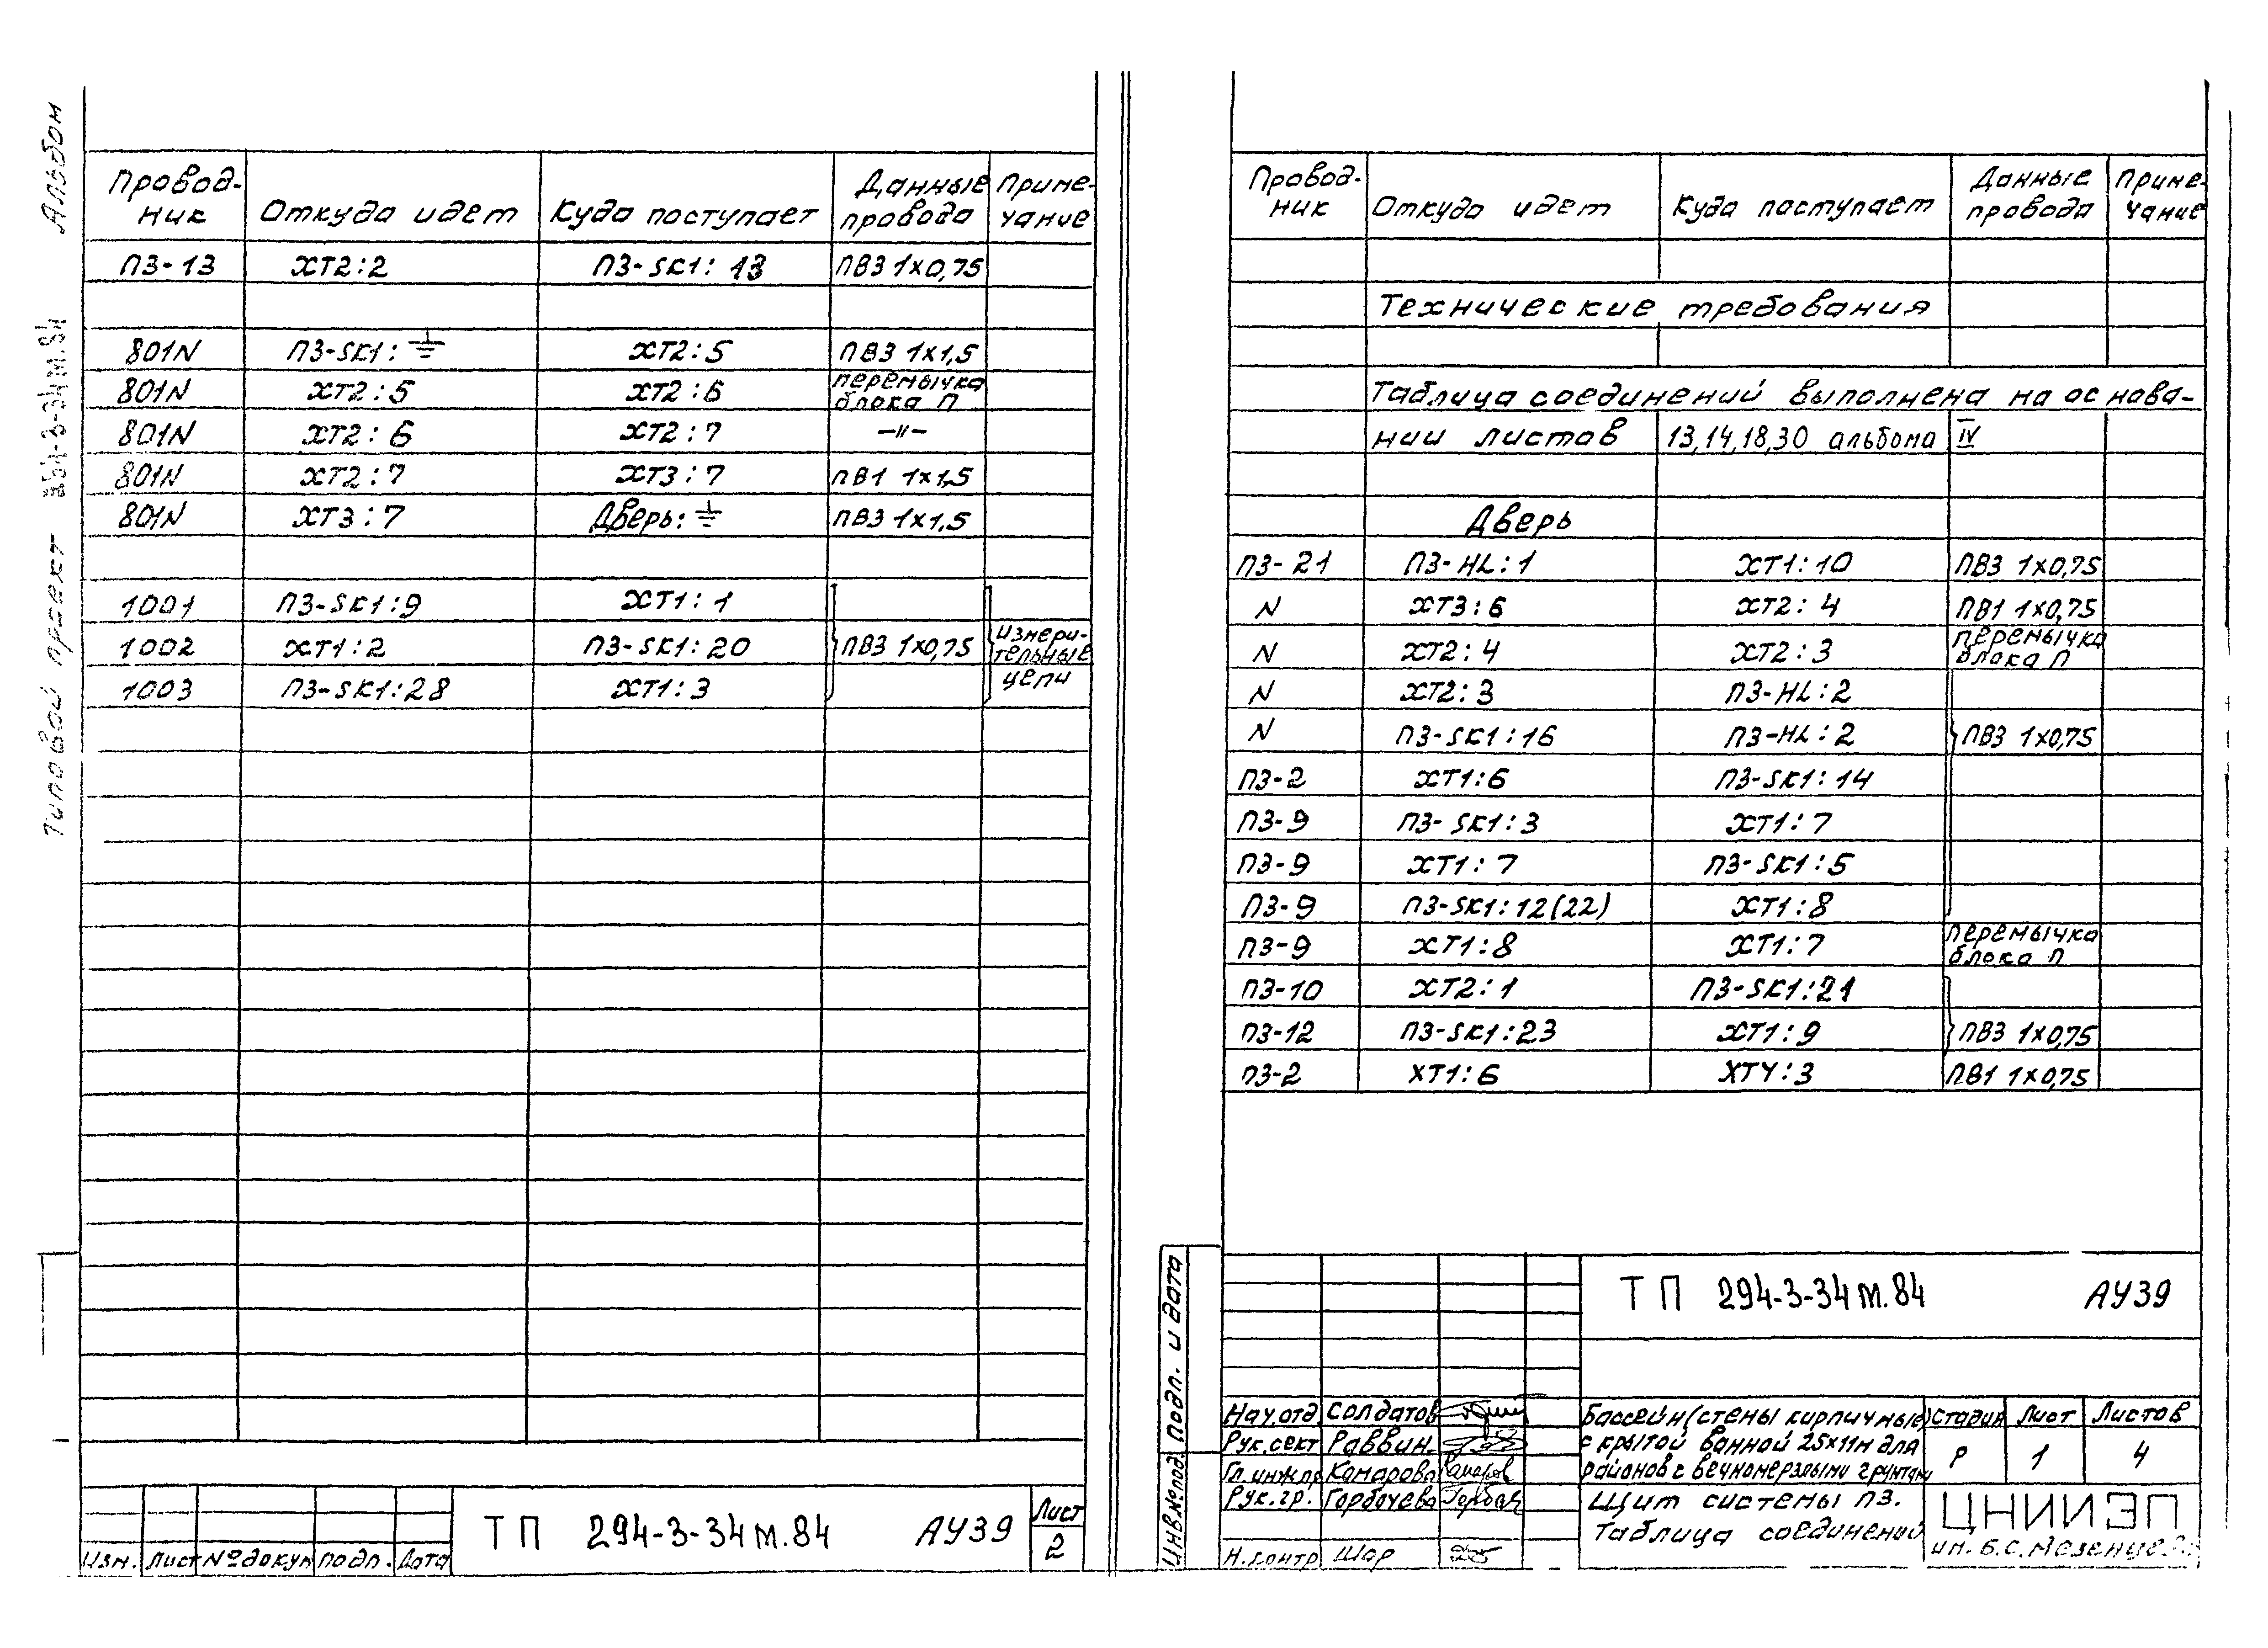 Альбом
Типовой проект 294-3-34м.84
Провод-ник Откуда идет Куда поступает Данные провода Приме-чание
П3-13 XT2:2 П3-SK1:13 ПВ3 1x0,75
801N П3-SK1:⏚ XT2:5 ПВ3 1x1,5
801N XT2:5 XT2:6 перемычка блока П
801N XT2:6 XT2:7 —〃—
801N XT2:7 XT3:7 ПВ1 1x1,5
801N XT3:7 Дверь:⏚ ПВ3 1x1,5
1001 П3-SK1:9 XT1:1
1002 XT1:2 П3-SK1:20 ПВ3 1x0,75 Измери-тельные цепи
1003 П3-SK1:28 XT1:3
Изм. Лист № докум подп. Дата
ТП 294-3-34м.84 АУ39
Лист
2
Провод-ник Откуда идет Куда поступает Данные провода Приме-чание
Технические требования
Таблица соединений выполнена на основа-
нии листов 13,14,18,30 альбома IV
Дверь
П3-21 П3-HL:1 XT1:10 ПВ3 1x0,75
N XT3:6 XT2:4 ПВ1 1x0,75
N XT2:4 XT2:3 перемычка блока П
N XT2:3 П3-HL:2
N П3-SK1:16 П3-HL:2 ПВ3 1x0,75
П3-2 XT1:6 П3-SK1:14
П3-9 П3-SK1:3 XT1:7
П3-9 XT1:7 П3-SK1:5
П3-9 П3-SK1:12(22) XT1:8
П3-9 XT1:8 XT1:7 перемычка блока П
П3-10 XT2:1 П3-SK1:21
П3-12 П3-SK1:23 XT1:9 ПВ3 1x0,75
П3-2 XT1:6 XT4:3 ПВ1 1x0,75
Инв.№ подл. Подп. и дата
ТП 294-3-34м.84 АУ39
Нач.отд. Солдатов
Рук.сект Раввин
Гл.инж.пр Комарова
Рук.гр. Горбачева
Н.контр Шор
Бассейн (стены кирпичные)
с крытой ванной 25x11м для
районов с вечномерзлыми грунтами
Стадия Лист Листов
Р 1 4
Щит системы П3.
Таблица соединений
ЦНИИЭП
им. Б.С. Мезенцева